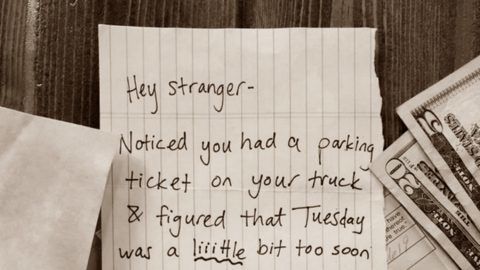 Hey stranger-
Noticed you had a parking
ticket on your truck
& figured that Tuesday
was a liiittle bit too soon
20